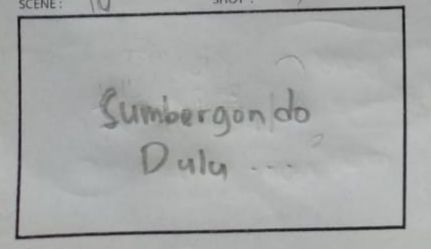 SCENE: 10
SHOT:
Sumbergondo
Dulu ...